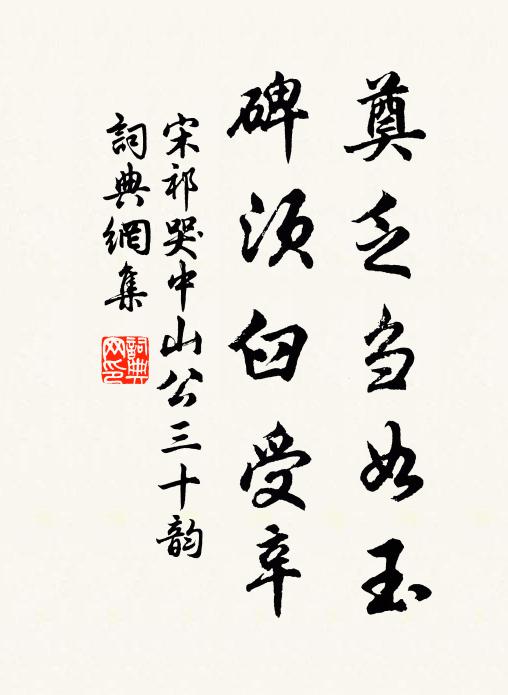 奠乏刍如玉
碑须臼受辛
宋祁哭中山公三十韵
詞典網集
詞典网印